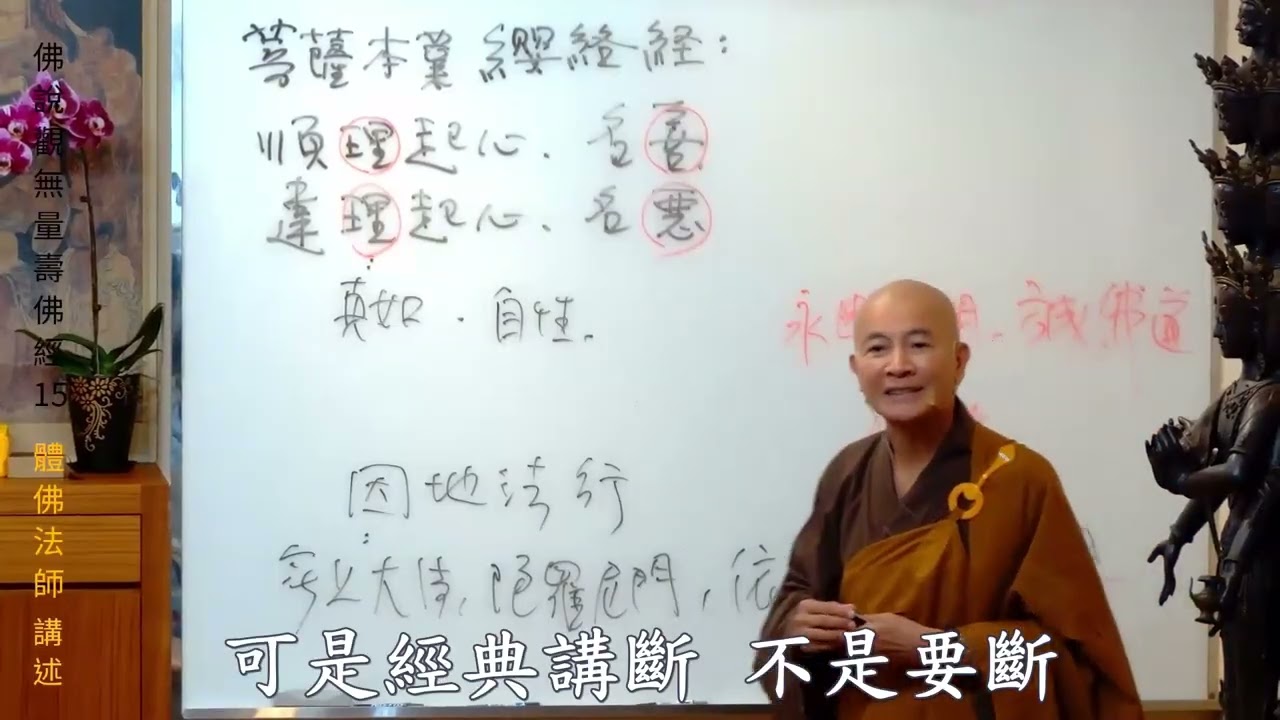 佛說觀無量壽佛經15 體佛法師講述
菩薩本業纓絡経：
順理起心．名善
違理起心．名惡
真如．自性．
永 誠佛道
因地法行
大 陁羅尼門，依
可是經典講斷 不是要斷